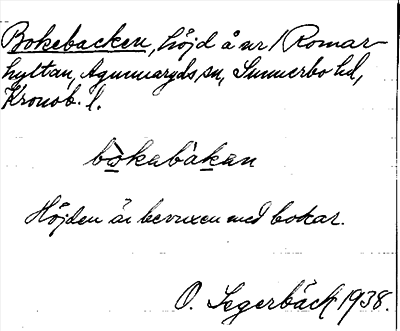 Bokebacken, höjd å nr 1 Romar-
hyltan, Agunnaryds sn, Sunnerbo hd,
Kronob. l.
bòkabàkan
Höjden är bevuxen med bokar.
O. Segerbäck 1938.